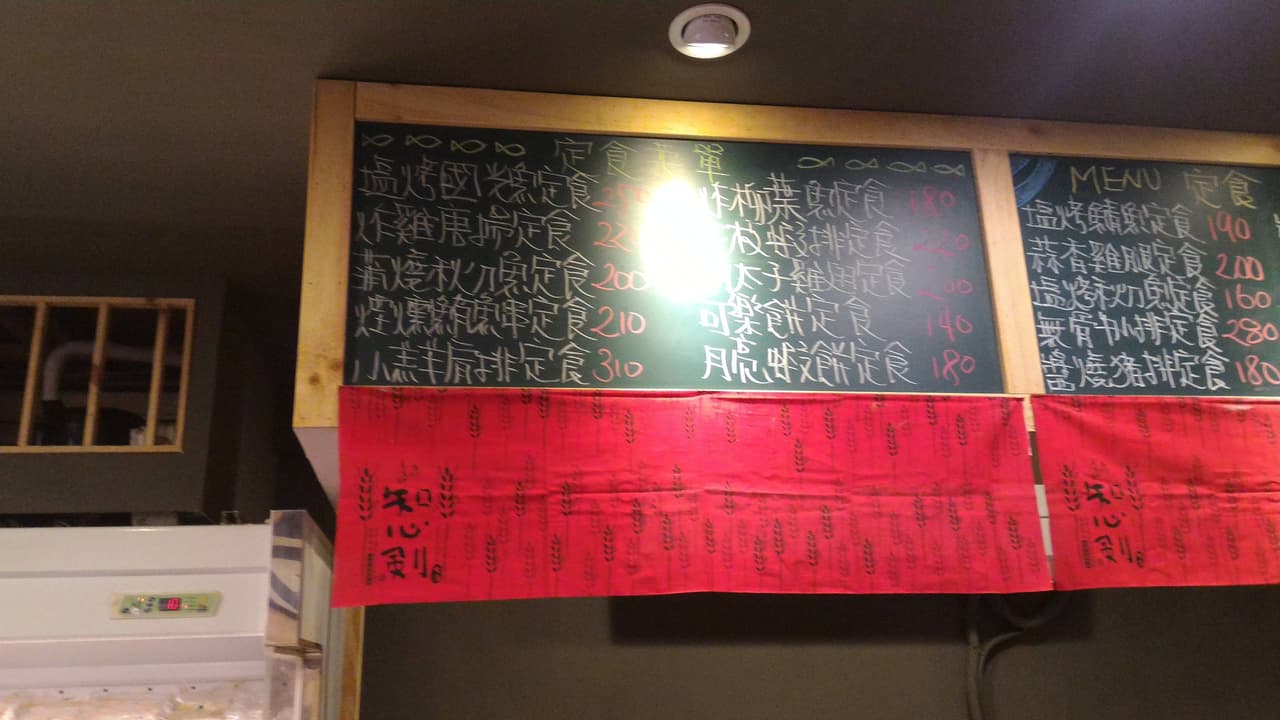 定食菜單
塩烤國鱘定食
炸雞唐揚定食 220
蒲燒秋刀魚定食 200
定食 210
小羔羊肩排定食 310
炸柳葉魚定食 180
花枝蝦排定食 220
明太子雞翅定食 200
可樂餅定食 140
月亮蝦餅定食 180
MENU 定食
塩烤鯖魚定食 190
蒜香雞腿定食 200
塩烤秋刀魚定食 160
無骨牛小排定食 280
醬燒豬排定食 180
知心
知心